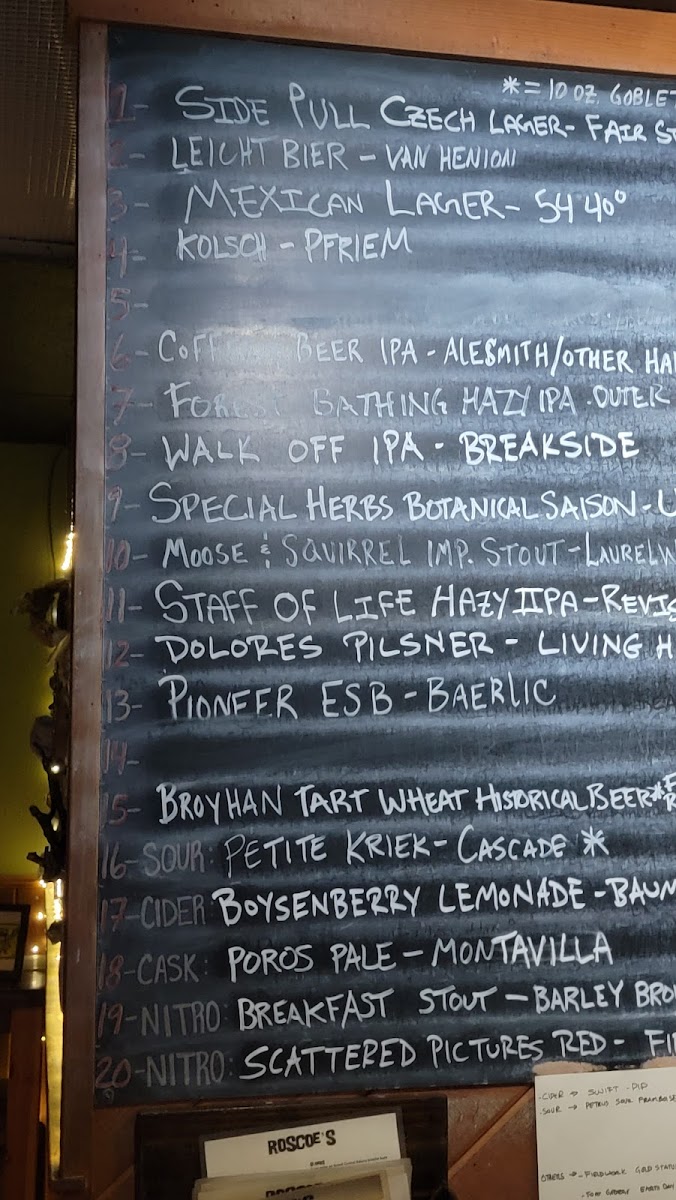 *= 10 OZ. GOBLET
1- SIDE PULL CZECH LAGER- FAIR
2- LEICHT BIER - VAN HENION
3- MEXICAN LAGER- 54 40°
4- KOLSCH - PFRIEM
5-
6- BEER IPA - ALESMITH/OTHER
7- FOREST BATHING HAZY IPA - OUTER
8- WALK OFF IPA - BREAKSIDE
9- SPECIAL HERBS BOTANICAL SAISON -
10- MOOSE & SQUIRREL IMP. STOUT -
11- STAFF OF LIFE HAZY IIPA -
12- DOLORES PILSNER - LIVING
13- PIONEER ESB - BAERLIC
14-
15- BROYHAN TART WHEAT HISTORICAL BEER*
16- SOUR: PETITE KRIEK - CASCADE *
17- CIDER BOYSENBERRY LEMONADE -
18- CASK: POROS PALE - MONTAVILLA
19- NITRO: BREAKFAST STOUT - BARLEY
20- NITRO: SCATTERED PICTURES RED -
ROSCOE'S
- CIDER → SWIFT - PIP
- SOUR → PETRUS SOUR
OTHERS → - FIELDWORK GOLD